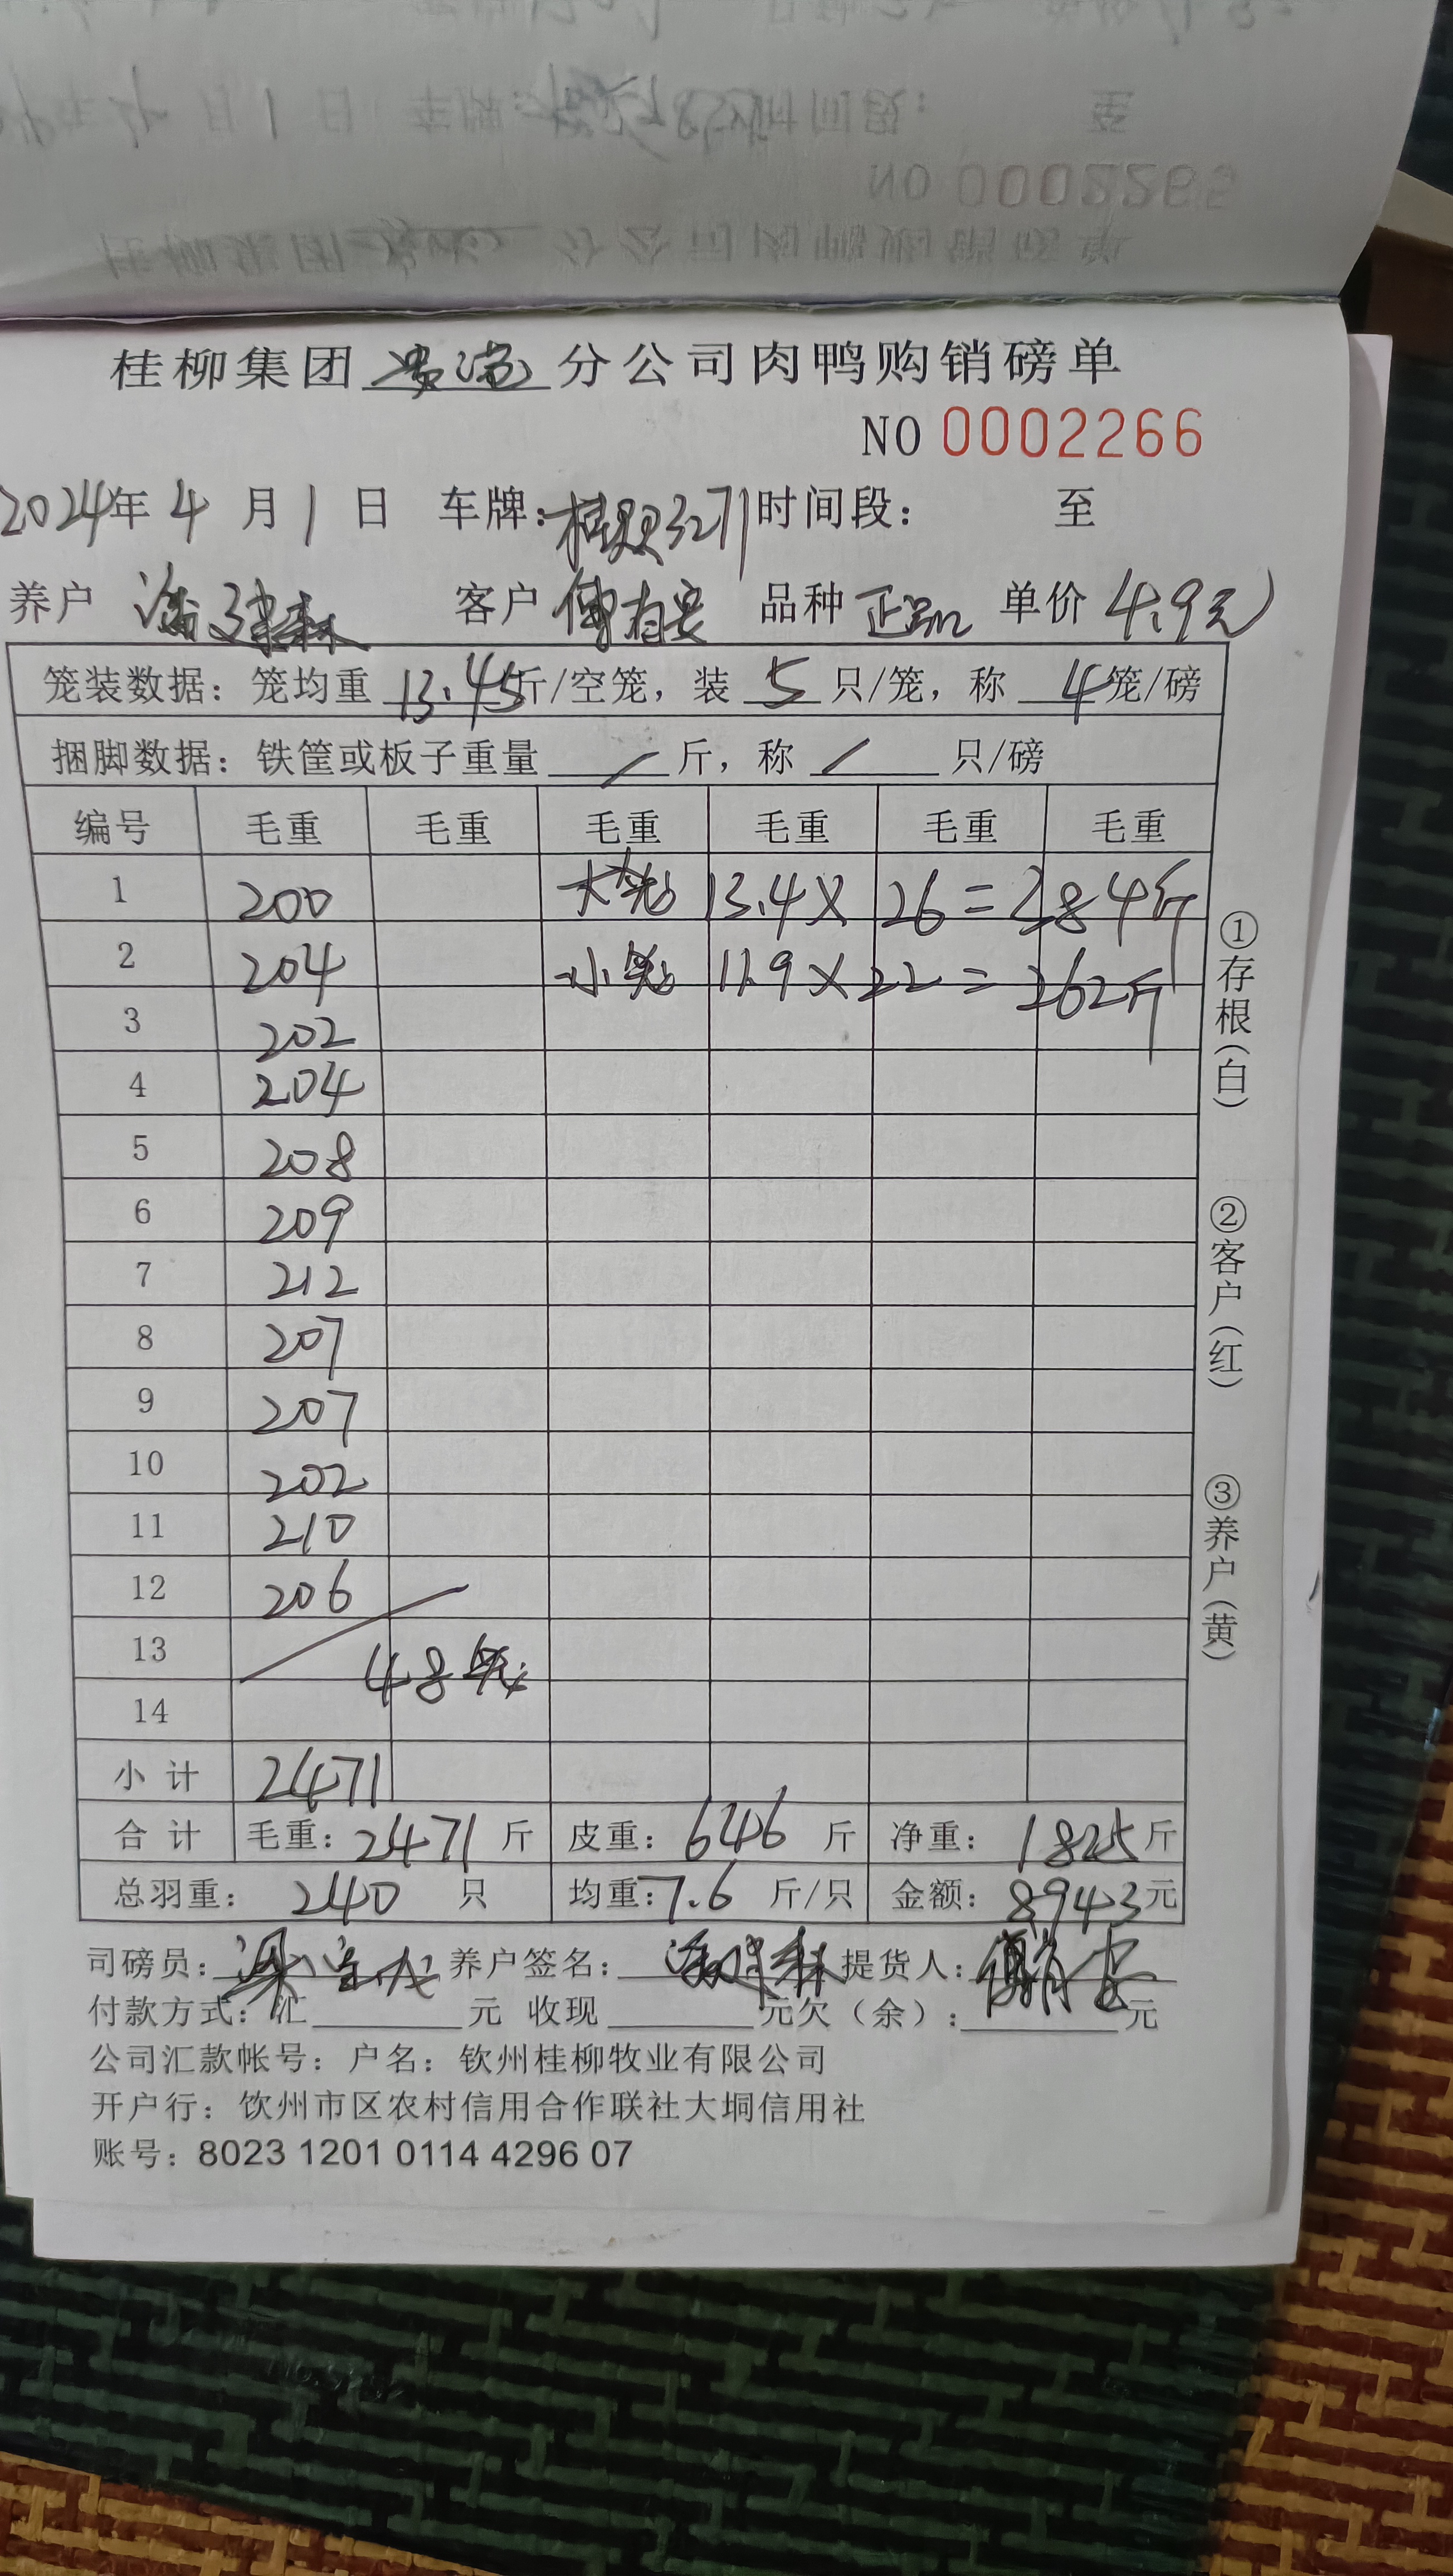 NO 0002265
桂柳集团 分公司肉鸭购销磅单
NO 0002266
2024年 4 月 1 日 车牌: 3271 时间段: 至
养户 潘建森 客户 傅有安 品种 正 单价 4.9元
笼装数据: 笼均重 13.45 斤/空笼, 装 5 只/笼, 称 4 笼/磅
捆脚数据: 铁筐或板子重量 / 斤, 称 / 只/磅
编号 毛重 毛重 毛重 毛重 毛重 毛重
1 200 大笼 13.4 X 26 = 384斤
2 204 小笼 11.9 X 22 = 262斤
3 202
4 204
5 208
6 209
7 212
8 207
9 207
10 202
11 210
12 206
13 48笼
14
小计 2471
合计 毛重: 2471 斤 皮重: 646 斤 净重: 1825 斤
总羽重: 240 只 均重: 7.6 斤/只 金额: 8943 元
司磅员: 养户签名: 潘建森 提货人: 傅有安
付款方式: 汇 元 收现 元欠(余): 元
公司汇款帐号: 户名: 钦州桂柳牧业有限公司
开户行: 钦州市区农村信用合作联社大垌信用社
账号: 8023 1201 0114 4296 07
①存根(白)
②客户(红)
③养户(黄)